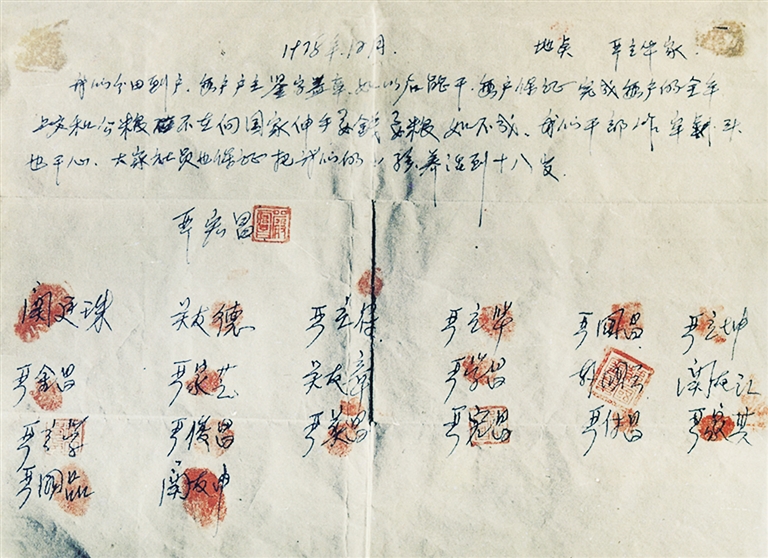 1978年12月. 地点 严立华家
我们分田到户,每户户主签字盖章,如以后能干,每户保证完成每户的全年
上交和公粮不在向国家伸手要钱要粮如不成,我们干部作牢杀头
也干心,大家社员也保证把我们的小孩养活到十八岁.
严宏昌
関廷珠 关友德 严立符 严立华 严国昌 严立坤
严金昌 严家芝 关友章 严学昌 韩国云 関友江
严立学 严俊昌 严美昌 严宏昌 严付昌 严家其
严国品 関友申